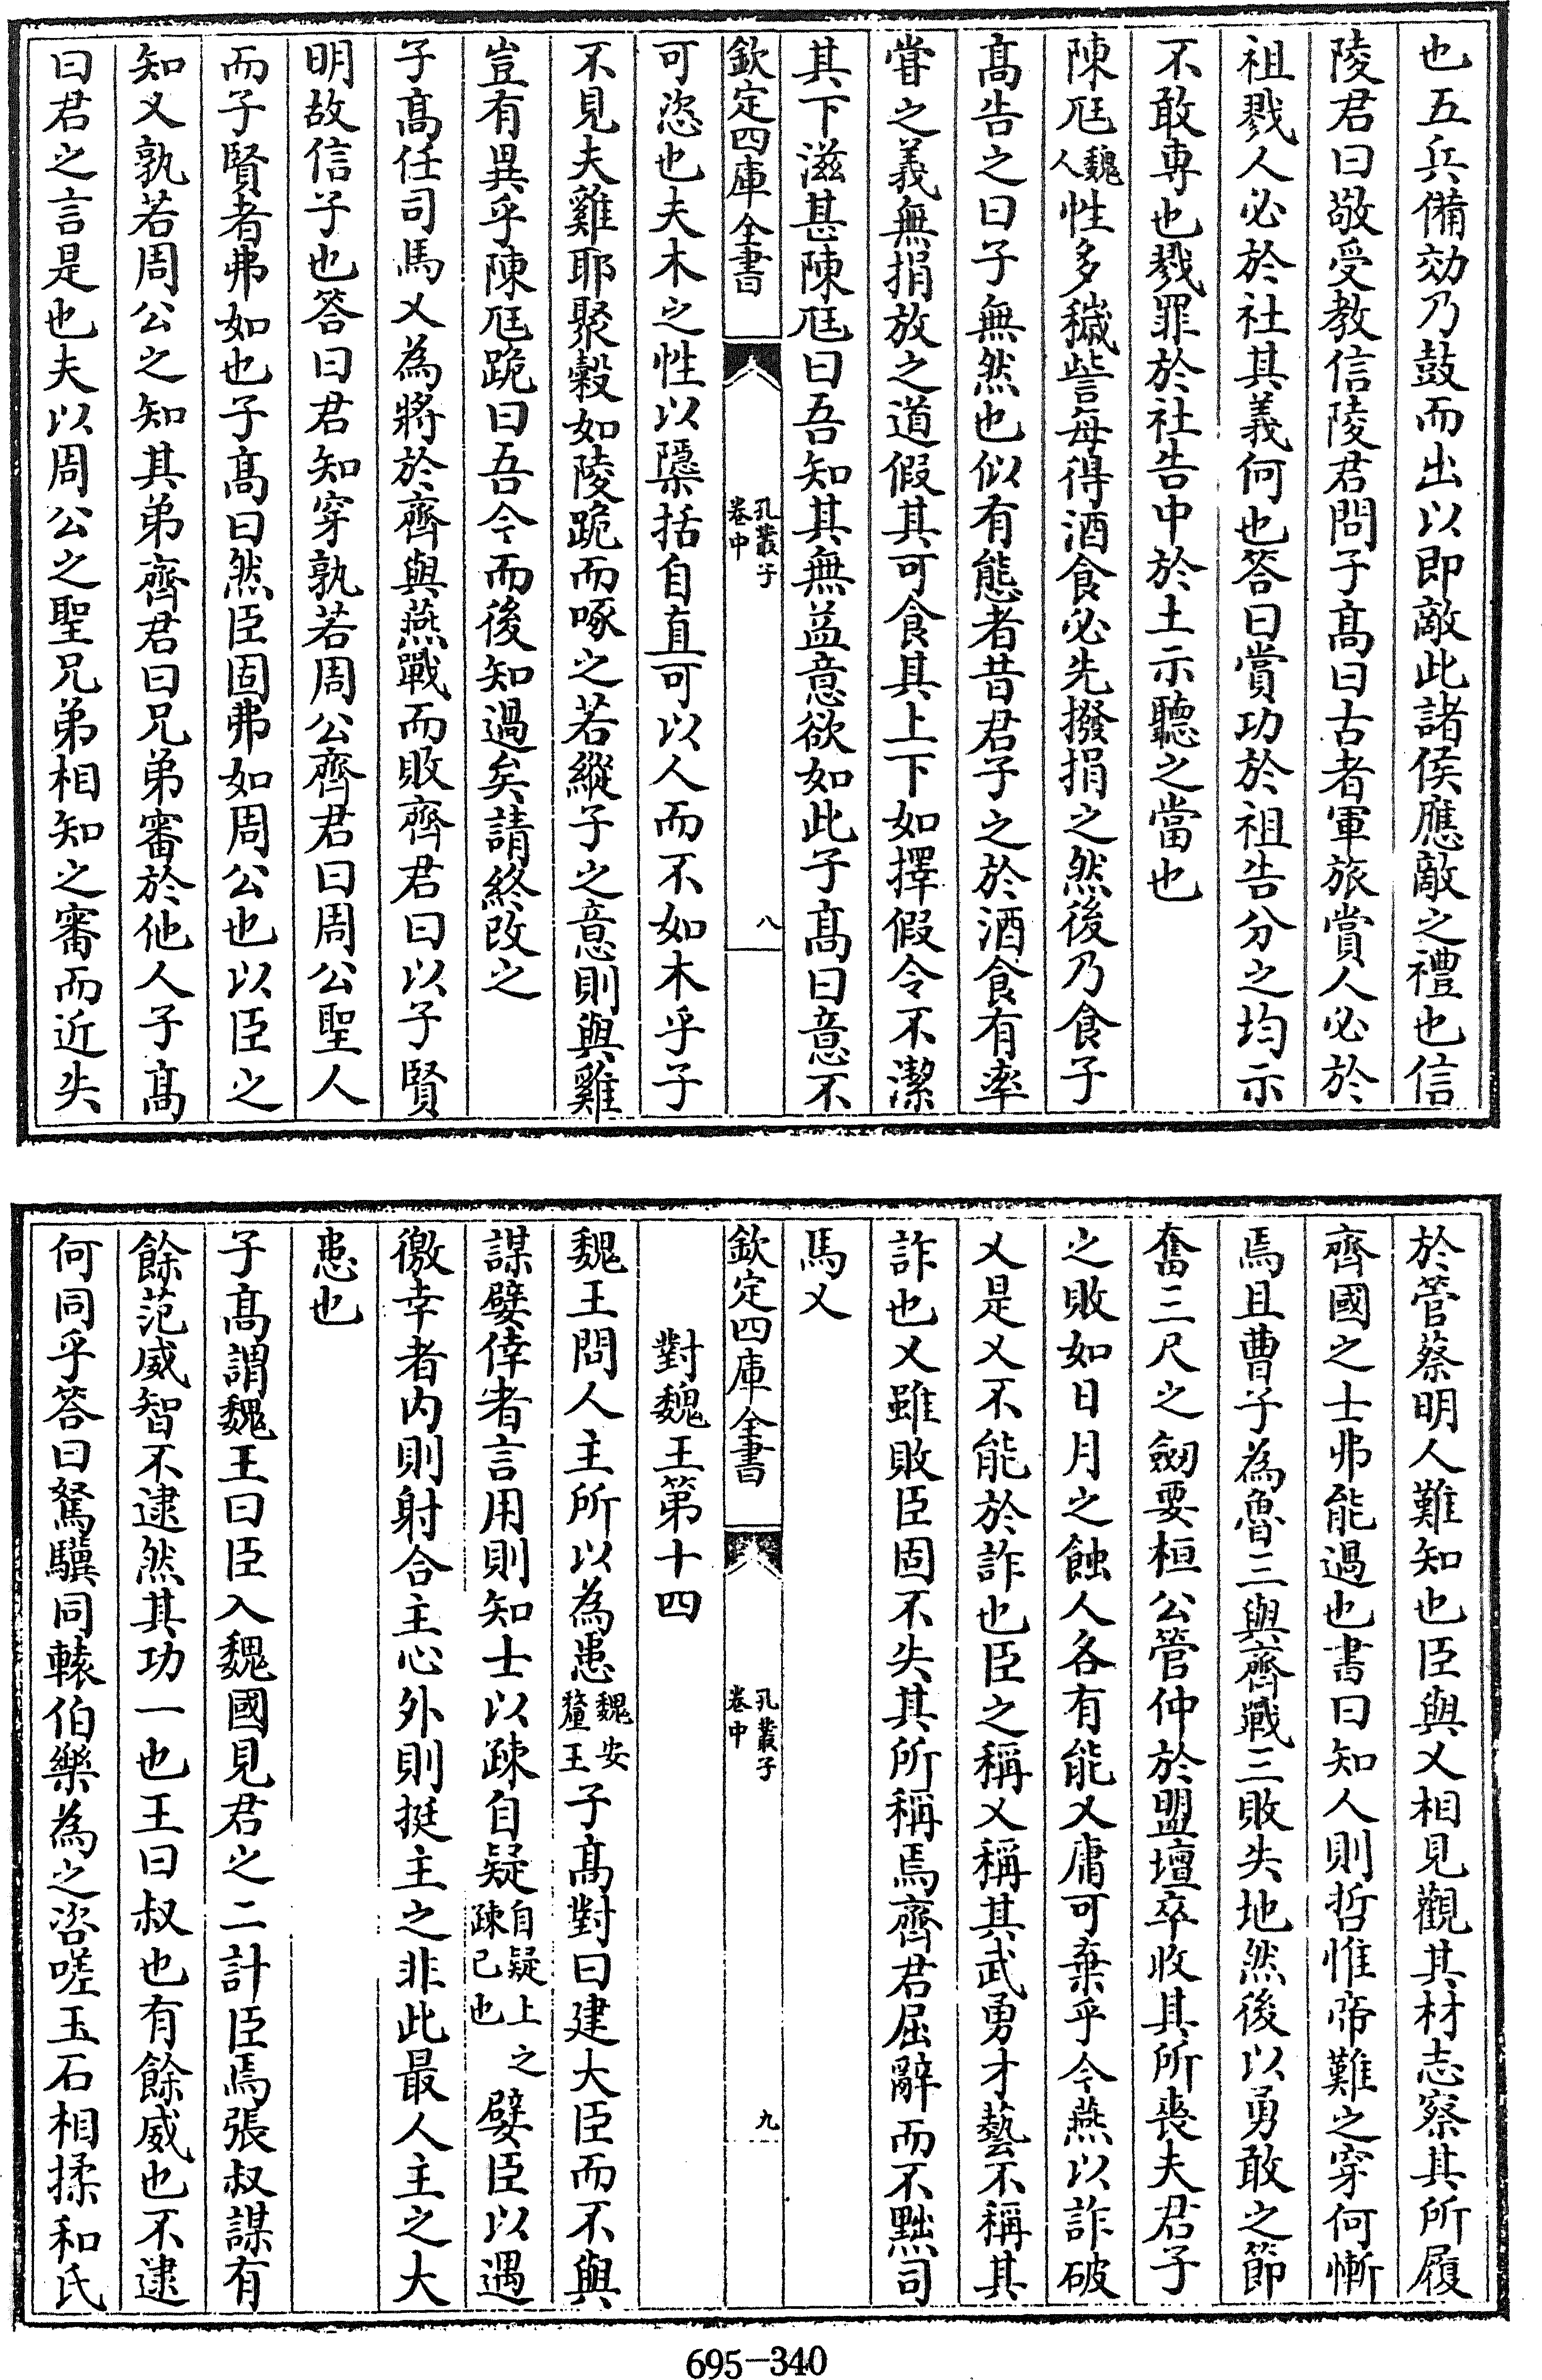 也五兵備効乃鼓而出以即敵此諸侯應敵之禮也信
陵君曰敬受教信陵君問子髙曰古者軍旅賞人必於
祖戮人必於社其義何也答曰賞功於祖告分之均示
不敢専也戮罪於社告中於土示聽之當也
陳尫魏人性多穢訾毎得酒食必先撥捐之然後乃食子
髙告之曰子無然也似有態者昔君子之於酒食有率
嘗之義無捐放之道假其可食其上下如擇假令不潔
其下滋甚陳尫曰吾知其無益意欲如此子髙曰意不
欽定四庫全書
孔叢子
卷中
八
可恣也夫木之性以隱括自直可以人而不如木乎子
不見夫雞耶聚穀如陵跪而啄之若縱子之意則與雞
豈有異乎陳尫跪曰吾今而後知過矣請終改之
子髙任司馬乂為將於齊與燕戰而敗齊君曰以子賢
明故信子也答曰君知穿孰若周公齊君曰周公聖人
而子賢者弗如也子髙曰然臣固弗如周公也以臣之
知乂孰若周公之知其弟齊君曰兄弟審於他人子髙
曰君之言是也夫以周公之聖兄弟相知之審而近失
於管蔡明人難知也臣與乂相見觀其材志察其所履
齊國之士弗能過也書曰知人則哲惟帝難之穿何慚
焉且曹子為魯三與齊戰三敗失地然後以勇敢之節
奮三尺之劒要桓公管仲於盟壇卒收其所喪夫君子
之敗如日月之蝕人各有能乂庸可棄乎今燕以詐破
乂是乂不能於詐也臣之稱乂稱其武勇才藝不稱其
詐也乂雖敗臣固不失其所稱焉齊君屈辭而不黜司
馬乂
欽定四庫全書
孔叢子
卷中
九
對魏王第十四
魏王問人主所以為患魏安釐王子髙對曰建大臣而不與
謀嬖倖者言用則知士以疎自疑自疑上之疎己也嬖臣以遇
徼幸者内則射合主心外則挺主之非此最人主之大
患也
子髙謂魏王曰臣入魏國見君之二計臣焉張叔謀有
餘范威智不逮然其功一也王曰叔也有餘威也不逮
何同乎答曰駑驥同轅伯樂為之咨嗟玉石相揉和氏
695-340